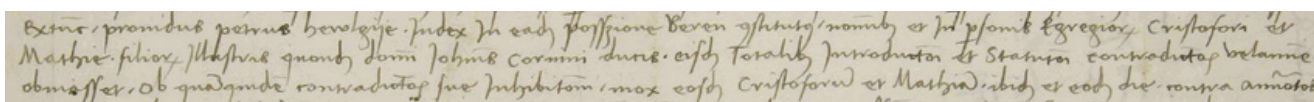 Extunc · prouidus petrus herczegije · Iudex In eadem possessione Beren constitutus / nominibus et In personis Egregiorum Cristofori et
Mathie · filiorum Illustris quondam domini Johannis Coruini ducis · eisdem Totalibus Introductioni et Statutioni contradictionis velamine
obuiasset · Ob quamquidem contradictionis sue Inhibitionem / mox eosdem Cristoforum et Mathiam · ibidem et eodem die · contra annotatos